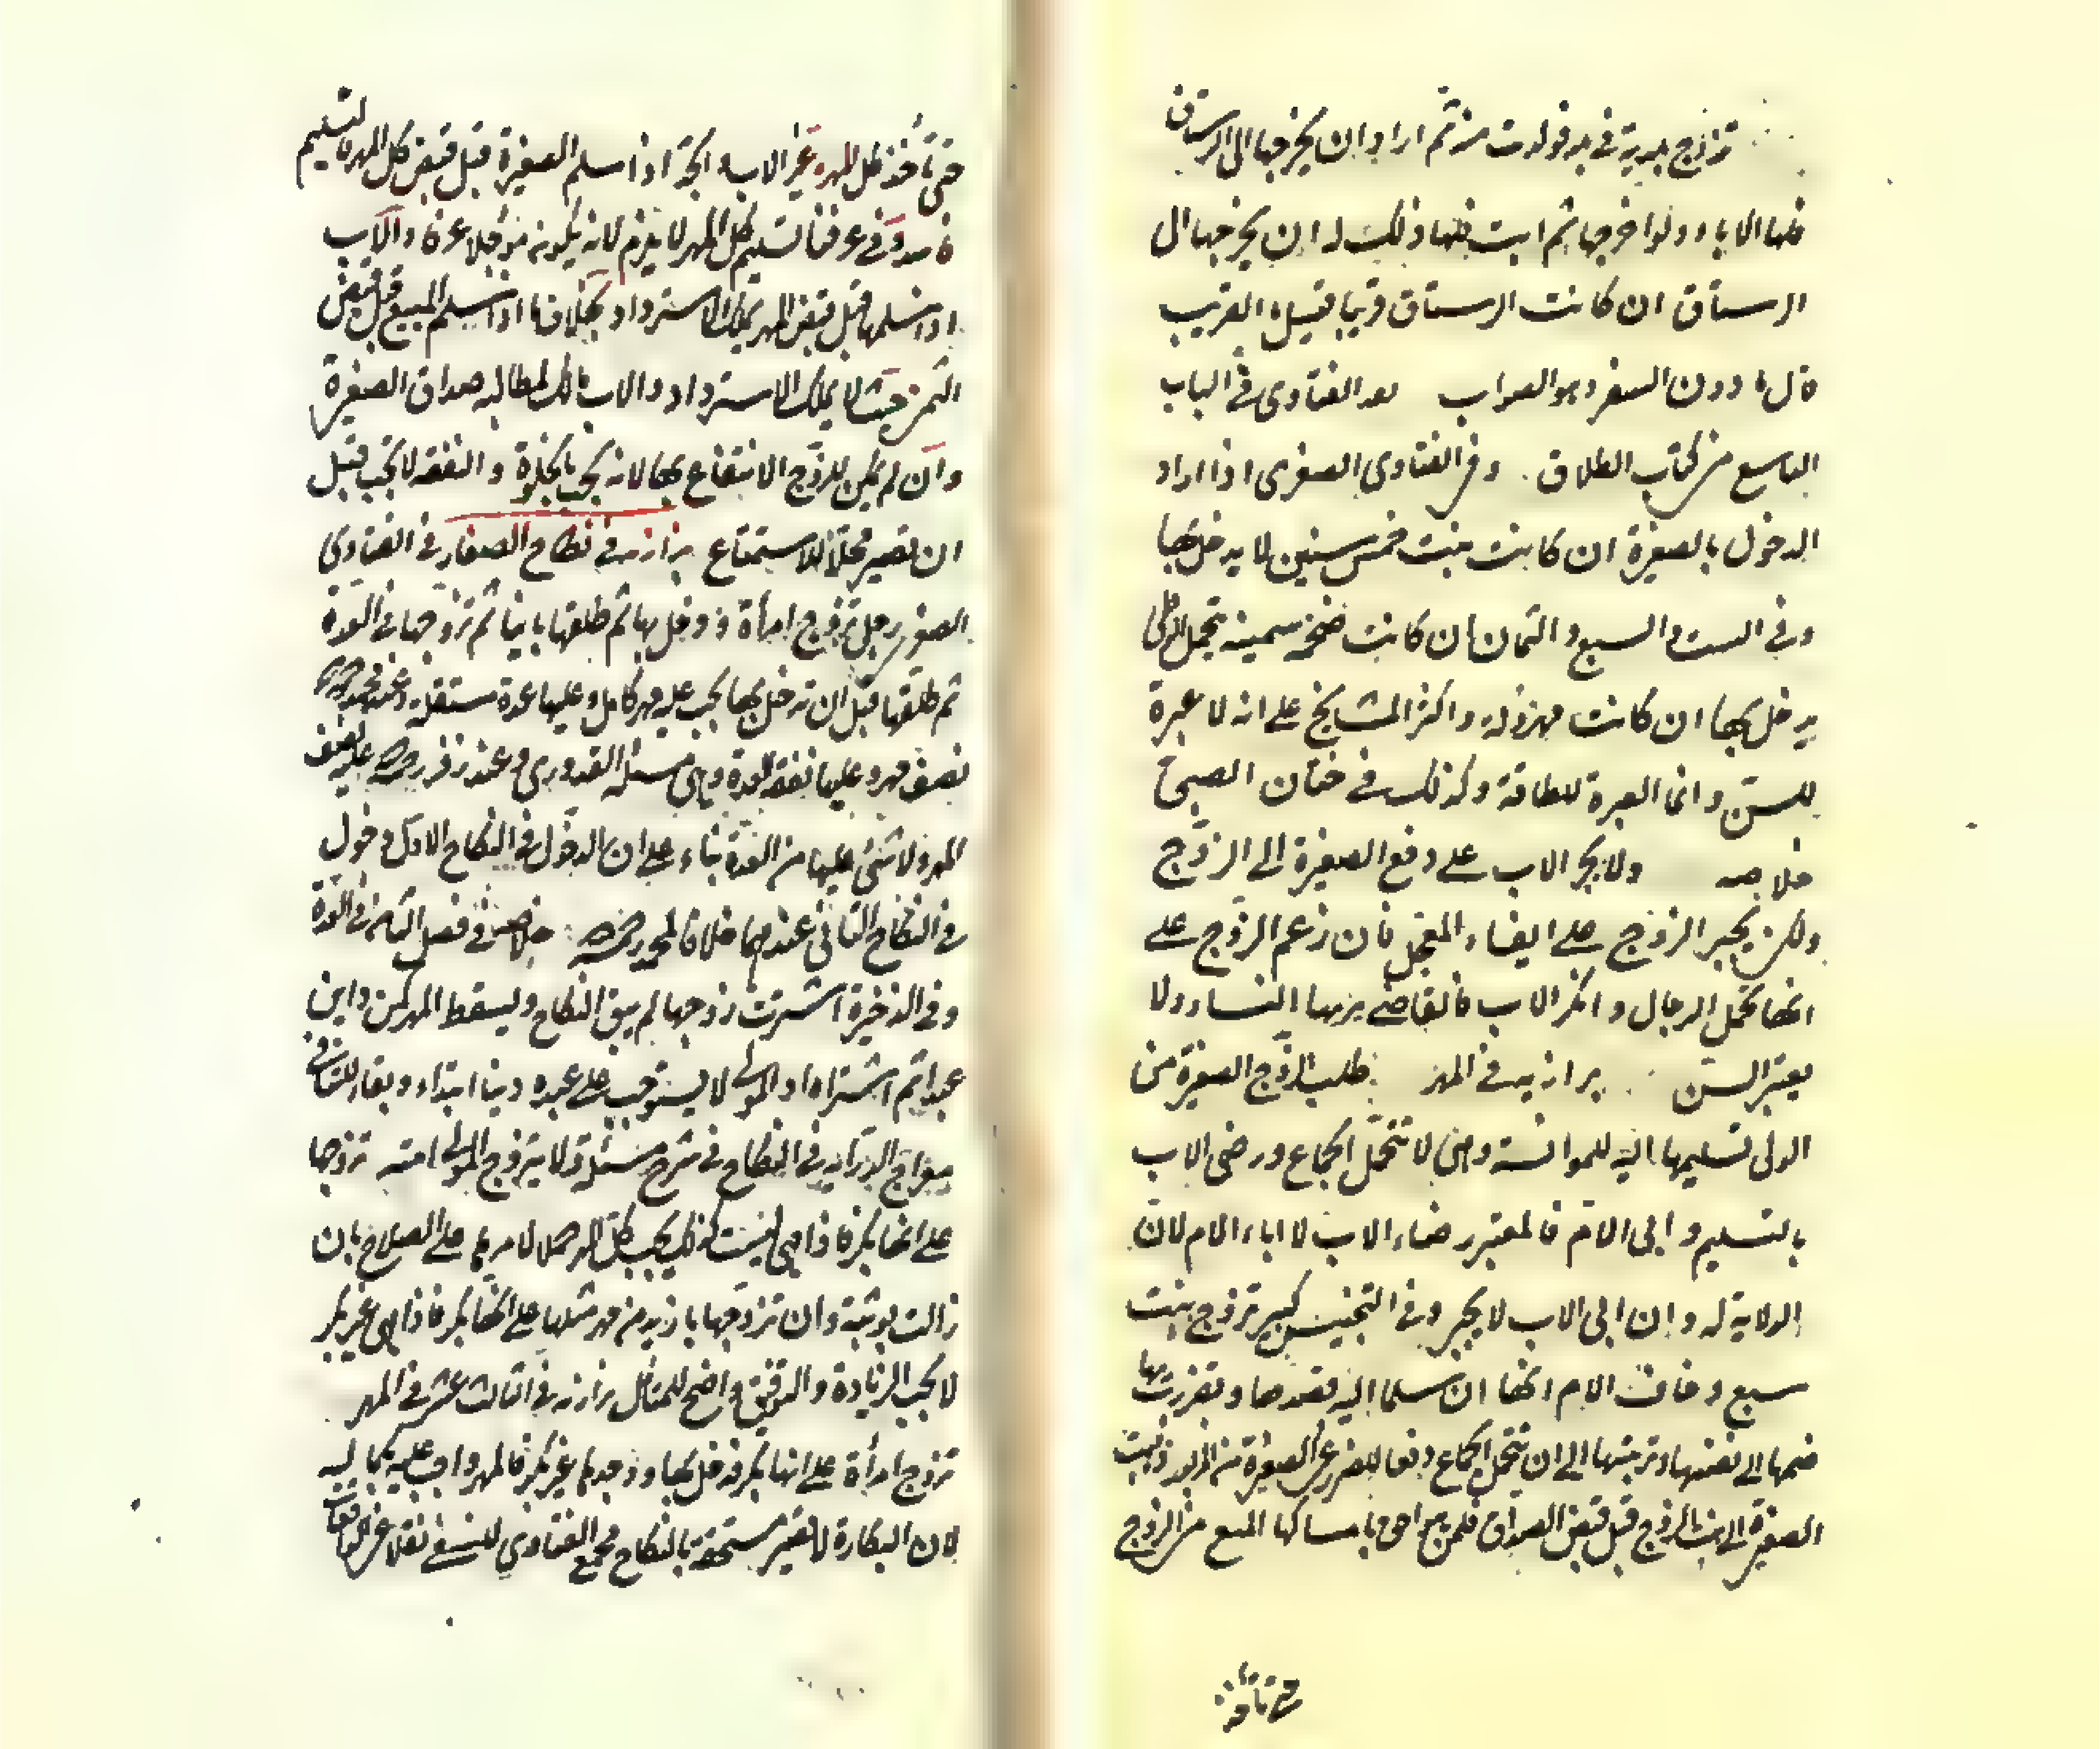 تزوج ببدرية في بلد فولدت منه ثم اراد ان يخرجها الى الرستاق
فلها الاباء ولو اخرجها ثم ابت فلها ذلك له ان يخرجها الى
الرستاق ان كانت الرستاق قريبا فقيل القريب
قال ما دون السفر وهو الصواب الفتاوى في الباب
التاسع من كتاب الطلاق وفي الفتاوى الصغرى اذا اراد
الدخول بالصغيرة ان كانت بنت خمس سنين لا يدخل بها
وفي الست والسبع والثمان ان كانت ضخمة سمينة تحمل الرجل
يدخل بها ان كانت مهزولة واكثر المشايخ على انه لا عبرة
للسن وانما العبرة للطاقة وكذلك في ختان الصبي
خلاصه ولا يجبر الاب على دفع الصغيرة الى الزوج
ولكن يجبر الزوج على ايفاء المعجل فان زعم الزوج على
انها تحمل الرجال وانكر الاب فالقاضي يريها النساء ولا
يعتبر السن بزازيه في المهر طلب الزوج الصغيرة من
الولى تسليمها اليه للموانسة وهي لا تتحمل الجماع ورضى الاب
بالتسليم وابى الام فالمعتبر رضاء الاب لا اباء الام لان
الولاية له وان ابى الاب لا يجبر وفي التجنيس كبير تزوج بنت
سبع وخافت الام انها ان سلما اليه يقصدها وتضررت بها
ضمها الى نفسها وتربيتها الى ان تتحمل الجماع دفعا للضرر عن الصغيرة ذهبت
الصغيرة الى بيت الزوج قبل قبض الصداق فلمن هو احق بامساكها المنع من الزوج
حتى تأخذ
حتى تأخذ كل المهر غير الاب والجد اذا سلم الصغيرة قبل قبض كل المهر فالتسليم
فاسد وفي عرفنا تسليم كل المهر لا يلزم لانه يكون مؤجلا عرفا والاب
اذا سلمها قبل قبض المهر يملك الاسترداد بخلاف ما اذا سلم المبيع قبل قبض
الثمن حيث لا يملك الاسترداد والاب يملك المطالبه صداق الصغيرة
وان لم يكن للزوج الانتفاع بها لانه يجب بالخلوة والنفقه لا تجب قبل
ان تصير محلا للاستمتاع بزازيه في نكاح الصغار في الفتاوى
الصغرى رجل تزوج امرأة ودخل بها ثم طلقها باينا ثم تزوجها في العدة
ثم طلقها قبل ان يدخل بها يجب عليه مهر كامل وعليها عدة مستقلة وعند محمد رحمه
نصف مهر وعليها نفقة العدة وهي مسئلة القدوري وعند زفر رحمه عليه نصف
المهر ولا شئ عليها من العدة بناء على ان الدخول في النكاح الاول دخول
في النكاح الثاني عندهما خلافا لمحمد رحمه خلاصه في فصل الثامن في العدة
وفي الذخيرة اشترت زوجها لم يبق النكاح ويسقط المهر كمن داين
عبدا ثم اشتراه اذ المولى لا يستوجب على عبده دينا ابتداء وبقاء للتنافي
معراج الدرايه في النكاح في شرح مسئلة ولا يتزوج المولى امته تزوجها
على انها بكر فاذا هي ليست كذلك يجب كل المهر حملا لامرها على الصلاح بان
زالت بوثبة وان تزوجها بازيد من مهر مثلها على انها بكر فاذا هي غير بكر
لا تجب الزيادة والتوفيق واضح للمتأمل بزازيه في الثالث عشر في المهر
تزوج امرأة على انها بكر فدخل بها ووجدها غير بكر فالمهر واجب عليه بكماله
لان البكارة لا تصير مستحقة بالنكاح مجمع الفتاوى للنسفي نقلا عن الواقعات